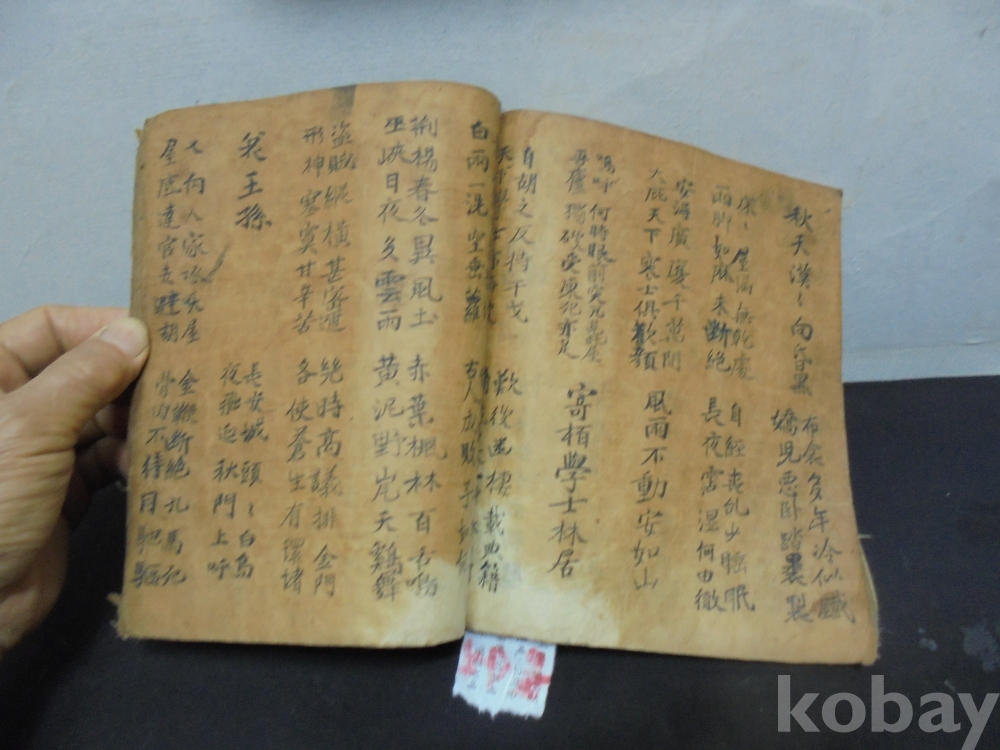 秋天漠〻向昏黑 布衾多年冷似鐵
嬌児悪卧踏裏製
床〻屋漏無乾處 自經喪乱少睡眠
雨脚如麻未斷絶 長夜霑湿何由徹
安得廣廈千萬間
大庇天下寒士俱歡顔 風雨不動安如山
嗚呼何時眼前突兀見此屋
吾廬獨破受凍死亦足
寄栢學士林居
自胡之反持干戈 歎後幽棲載典籍
天下
白雨一洗空垂蘿 古人成敗子
荆楊春冬異風土 赤葉楓林百舌鳴
巫峽日夜多雲雨 黄泥野岸天鷄舞
盗賊縱橫甚密邇 幾時高議排金門
形神寂寞甘辛苦 各使蒼生有環堵
哀王孫
長安城頭〻白烏
夜飛延秋門上呼
又向人家啄大屋 金鞭断絶九馬死
屋底達官走避胡 骨肉不待同馳驅
kobay